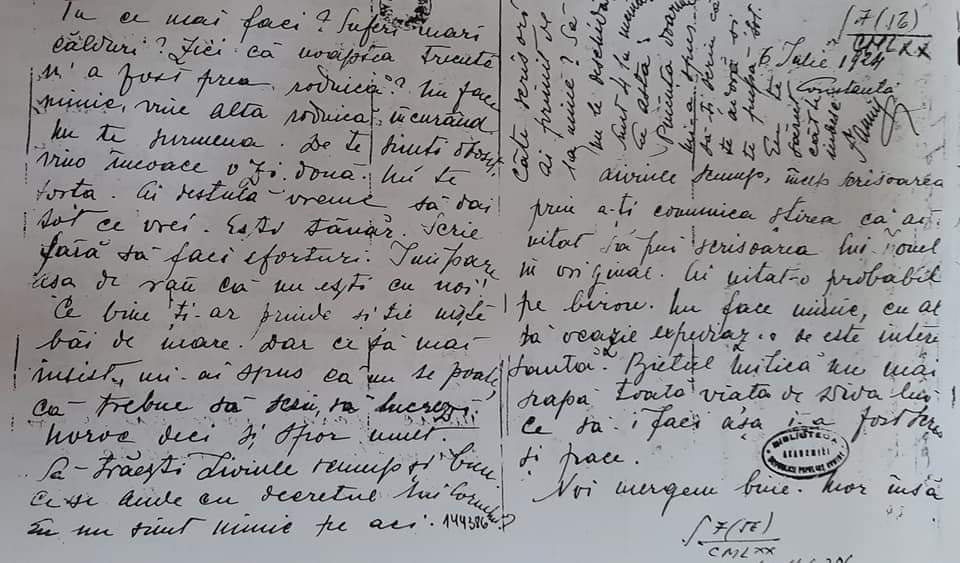 Tu ce mai faci? Suferi mari
călduri? Zici că noaptea trecută
n'a fost prea rodnică? Nu face
nimic, vine alta rodnică, încurând.
Nu te surmena. De te simți obosit
vino încoace o zi, două. Nu te
forța. Ai destulă vreme să dai
tot ce vrei. Ești tânăr. Scrie
fără să faci eforturi. Imi pare
așa de rău că nu ești cu noi!
Ce bine ți-ar prinde și ție niște
băi de mare. Dar ce să mai
insist, mi-ai spus că nu se poate,
că trebue să scrii, să lucrezi.
Noroc deci și spor mult.
Să trăești Liviule scump și bun
ce se aude cu decretul lui
Eu nu simt nimic pe aci. 144386
câte scrisori
ai primit de
la mine? Să
nu le deschidă
sunt 4 la număr
cu asta!
Puiuța doarme
mi-a spus
să-ți scriu că
te adoră și
te pupă tot.
Eu te
sărut
cât te
iubesc
Fanny
S 7(16)
CMLXX
6 Iulie 1924
Constanța
Liviule scump, încep scrisoarea
prin a-ți comunica știrea că ai
uitat să pui scrisoarea lui Ionel
în original. Ai uitat-o probabil
pe birou. Nu face nimic, cu al
tă ocazie expediaz-o de este intere
santă. Bietul Mitică nu mai
scapă toată viața de Dida lui
ce să-i faci așa i-a fost scris
și pace.
BIBLIOTECA
ACADEMIEI
REPUBLICII POPULARE ROMÎNE
Noi mergem bine. Mor însă
S 7(16)
CMLXX